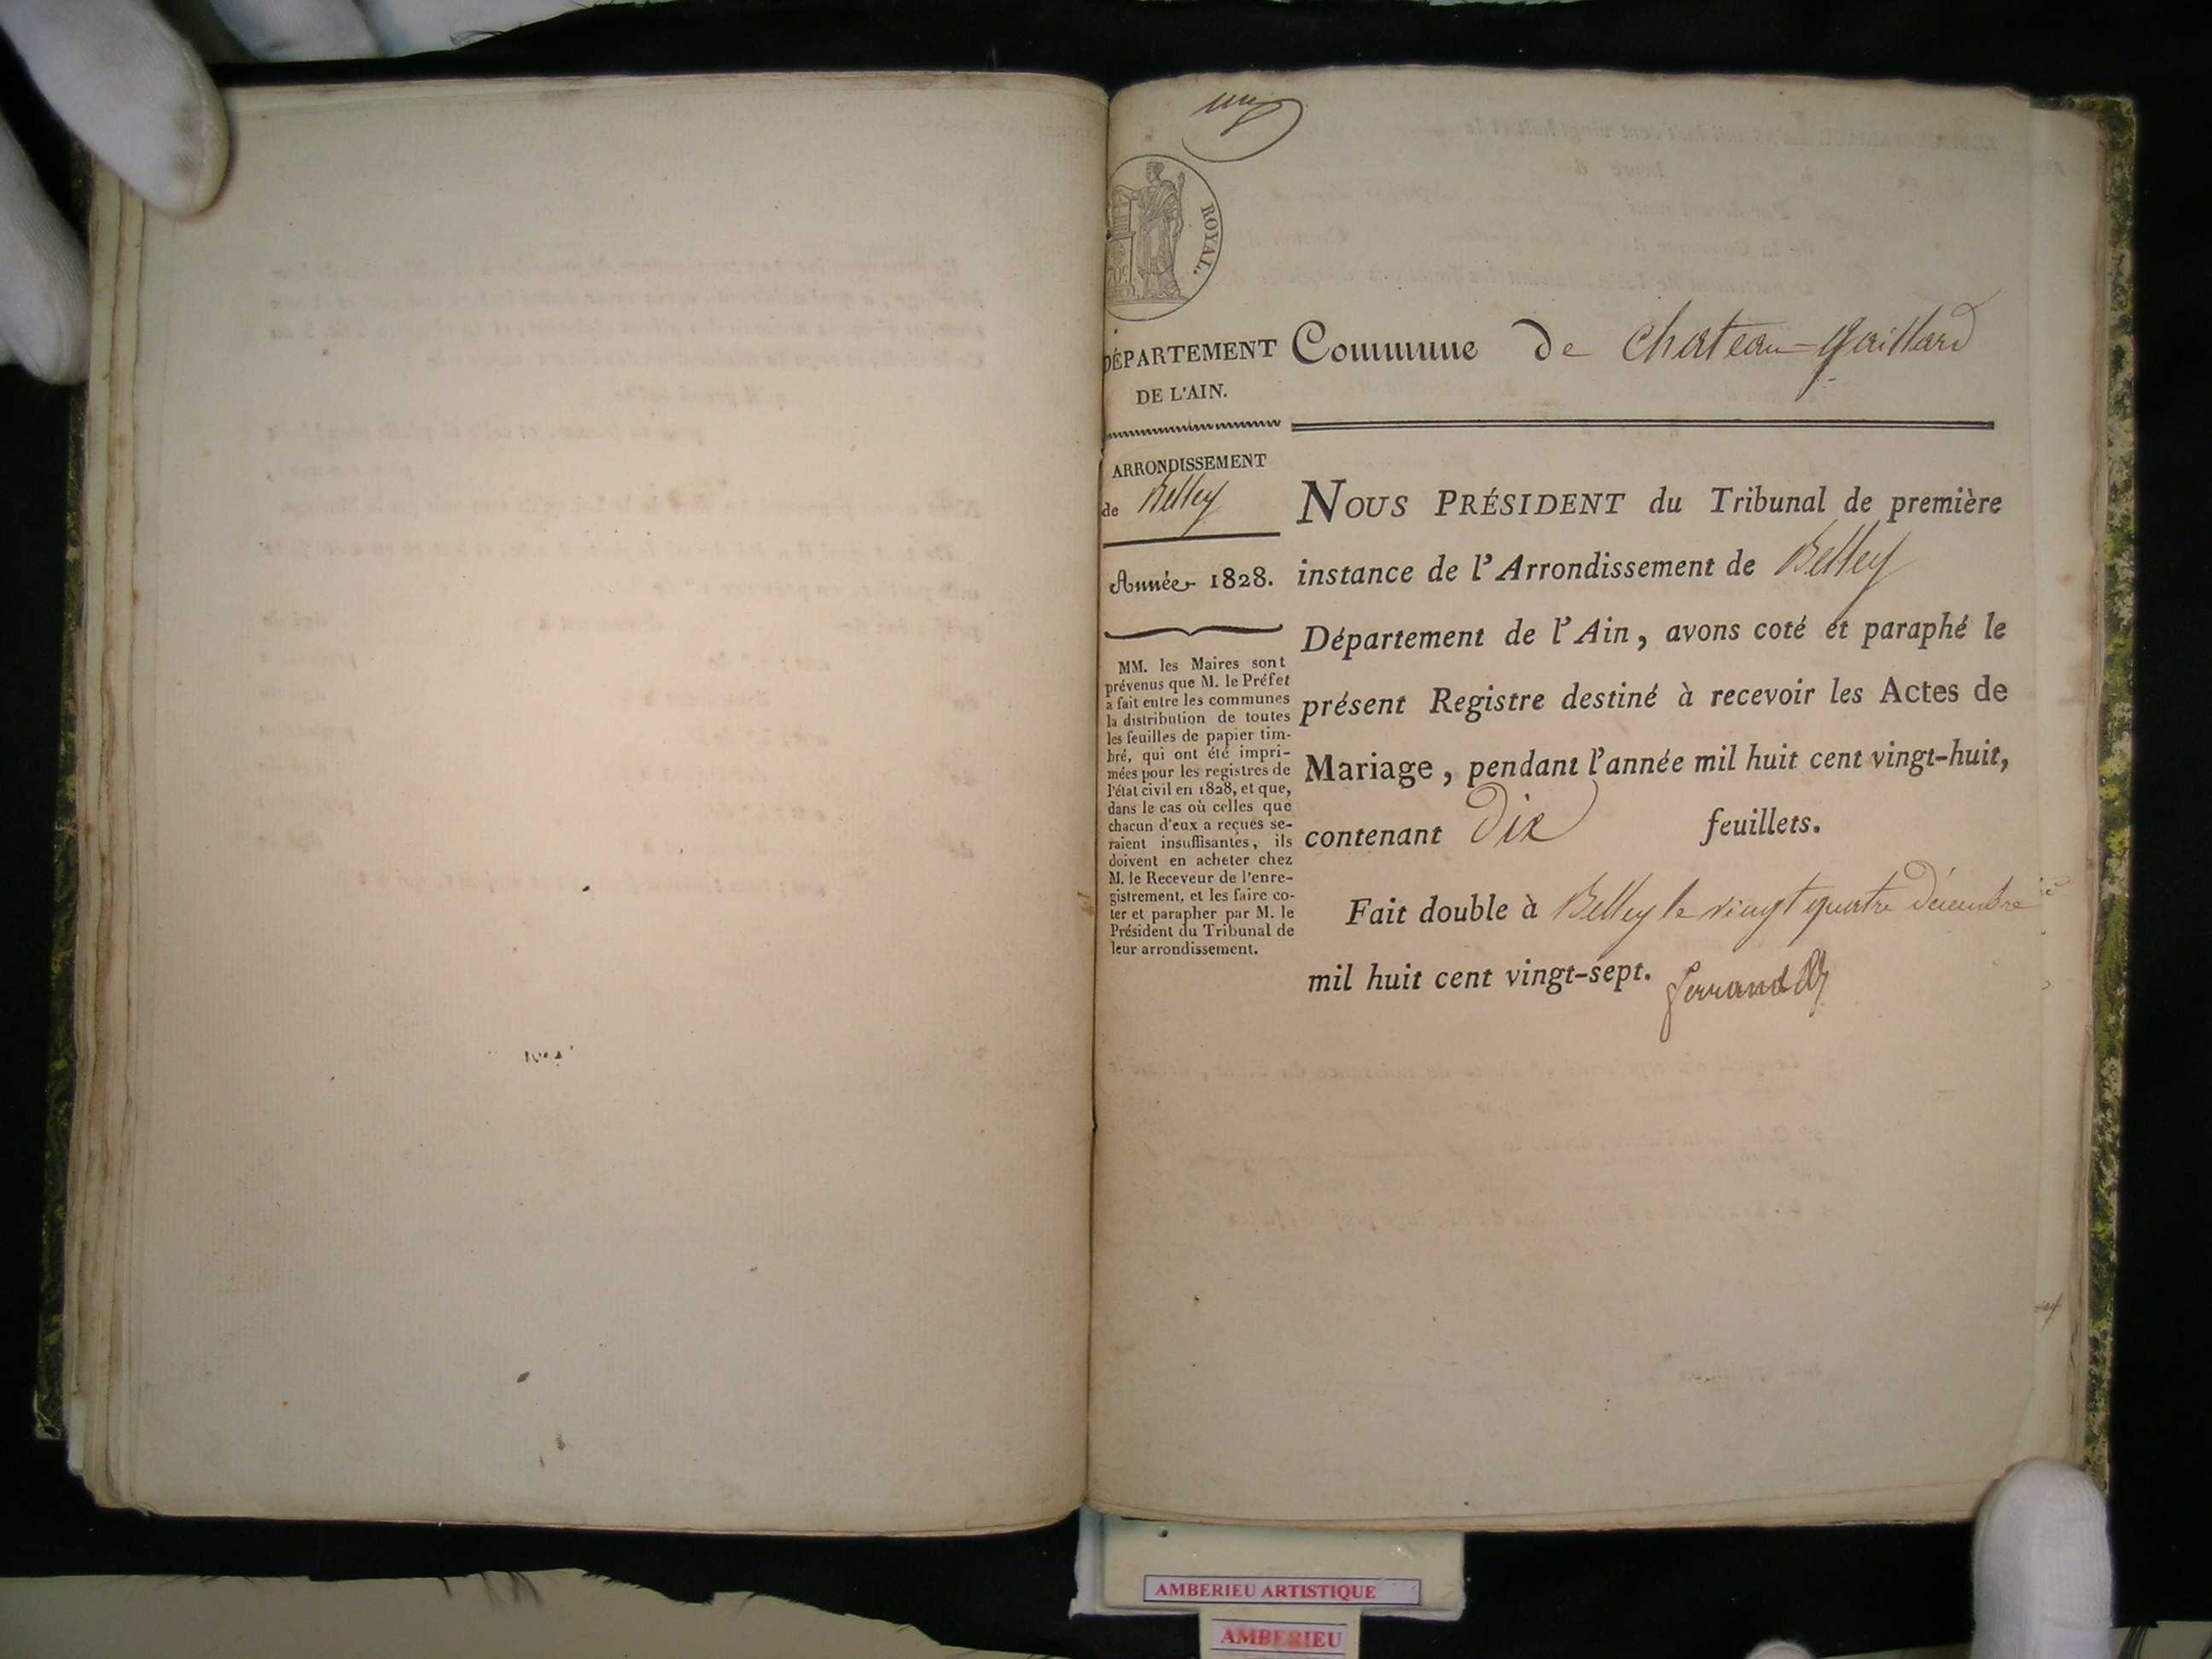 un
ROYAL.
DÉPARTEMENT
DE L'AIN.
Commune de Chateau-gaillard
ARRONDISSEMENT
de Belley
Année 1828.
MM. les Maires sont
prévenus que M. le Préfet
a fait entre les communes
la distribution de toutes
les feuilles de papier tim-
bré, qui ont été impri-
mées pour les registres de
l'état civil en 1828, et que,
dans le cas où celles que
chacun d'eux a reçues se-
raient insuffisantes, ils
doivent en acheter chez
M. le Receveur de l'enre-
gistrement, et les faire co-
ter et parapher par M. le
Président du Tribunal de
leur arrondissement.
NOUS PRÉSIDENT du Tribunal de première
instance de l'Arrondissement de Belley
Département de l'Ain, avons coté et paraphé le
présent Registre destiné à recevoir les Actes de
Mariage, pendant l'année mil huit cent vingt-huit,
contenant Dix feuillets.
Fait double à Belley le vingt quatre décembre
mil huit cent vingt-sept.
AMBERIEU ARTISTIQUE
AMBERIEU